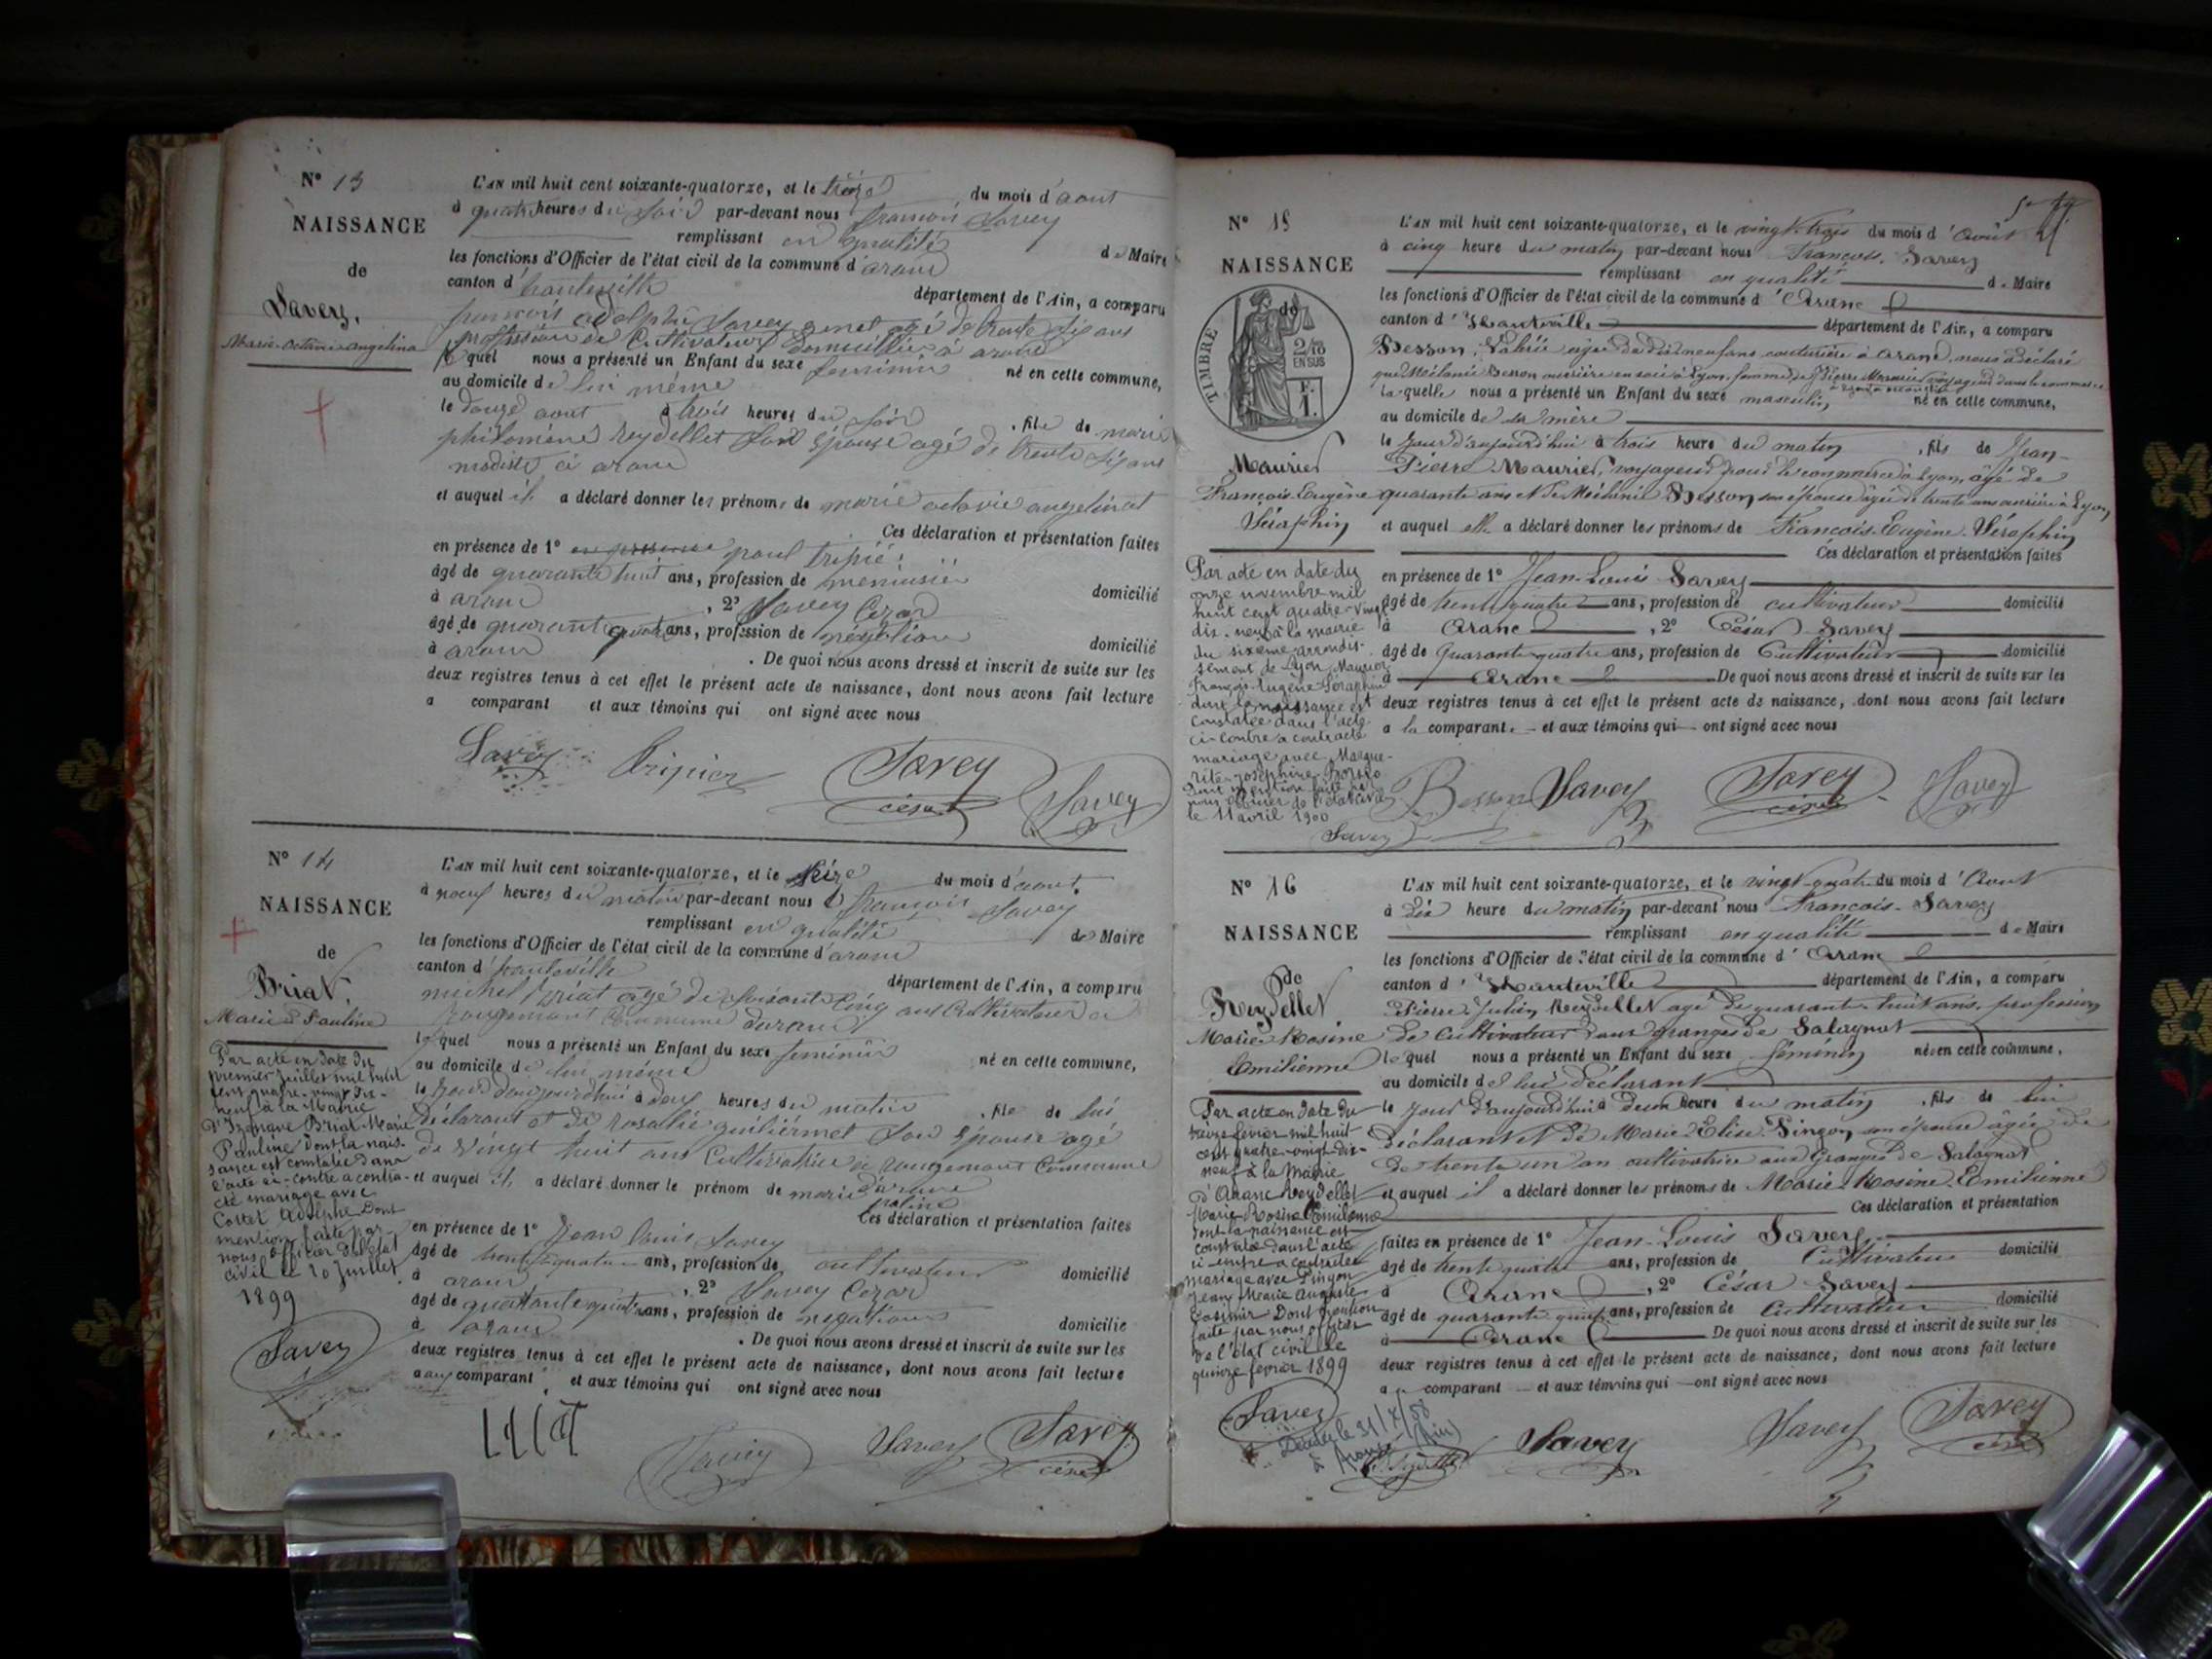 N° 13
NAISSANCE
de
Savey,
Marie octavie angelina
L'AN mil huit cent soixante-quatorze, et le treize du mois d'aout
à quatre heures du soir par-devant nous francois Savey
remplissant en qualité de Maire
les fonctions d'Officier de l'état civil de la commune d'aranc
canton d'hauteville département de l'Ain, a comparu
francois adolphe Savey genet agé de trente six ans
profession de Cultivateur domicillié à aranc
lequel nous a présenté un Enfant du sexe feminin né en cette commune,
au domicile de lui même
le douze aout à trois heures du soir , file de marie
philomène reydellet son épouse agé de trente six ans
modiste à aranc
et auquel il a déclaré donner les prénoms de marie octavie angelinat
Ces déclaration et présentation faites
en présence de 1° en presence paul tripié
âgé de quarante huit ans, profession de menuisier domicilié
à aranc , 2° Savey Cezar
âgé de quarante quatre ans, profession de négotiant domicilié
à aranc . De quoi nous avons dressé et inscrit de suite sur les
deux registres tenus à cet effet le présent acte de naissance, dont nous avons fait lecture
a comparant et aux témoins qui ont signé avec nous
Savey Tripier Savey césar Savey
N° 14
NAISSANCE
de
Briat,
Marie Pauline
L'AN mil huit cent soixante-quatorze, et le seize du mois d'aout.
à neuf heures du matin par-devant nous francois Savey
remplissant en qualité de Maire
les fonctions d'Officier de l'état civil de la commune d'aranc
canton d'hauteville département de l'Ain, a comparu
michel briat agé de soixante cinq ans Cultivateur à
rougemont Commune daranc
lequel nous a présenté un Enfant du sexe feminin né en cette commune,
au domicile de lui même
le jour daujourdhui à deux heures du matin , file de lui
déclarant et de rosalie guillermet son épouse agé
de vingt huit ans Cultivatrice à rougemont Commune
daranc
et auquel il a déclaré donner le prénom de marie
pauline
Ces déclaration et présentation faites
en présence de 1° Jean louis Savey
âgé de trente quatre ans, profession de cultivateur domicilié
à aranc , 2° Savey Cezar
âgé de quarante quatre ans, profession de negotiant domicilié
à aranc . De quoi nous avons dressé et inscrit de suite sur les
deux registres tenus à cet effet le présent acte de naissance, dont nous avons fait lecture
a au comparant et aux témoins qui ont signé avec nous
Savey Savey Savey césar
Par acte en date du
premier Juillet mil huit
cent quatre-vingt dix-
neuf à la Mairie
d'Izenave Briat Marie
Pauline dont la nais-
sance est constatée dans
l'acte ci-contre a contra-
cté mariage avec
Cottet Adolphe Dont
mention faite par
nous officier de l'état
civil le 10 Juillet
1899
Savey
N° 15
NAISSANCE
de
TIMBRE
2/10
EN SUS
F.
1.
Maurier
François Eugène
Séraphin
L'AN mil huit cent soixante-quatorze, et le vingt-trois du mois d'Août
à cinq heure du matin par-devant nous François Savey
remplissant en qualité de Maire
les fonctions d'Officier de l'état civil de la commune d'Aranc
canton d'Hauteville département de l'Ain, a comparu
Besson, Valérie agée de dix neuf ans couturière à Aranc, nous a déclaré
que Mélanie Besson ouvrière en soie à Lyon, femme de Pierre Maurier voyageur dans le commerce
laquelle nous a présenté un Enfant du sexe masculin né en cette commune,
au domicile de sa mère
le jour d'aujourd'hui à trois heure du matin , fils de Jean-
Pierre Maurier, voyageur pour le commerce à Lyon, âgé de
quarante ans et de Mélanie Besson, son épouse âgée de trente ans ouvrière à Lyon
et auquel elle a déclaré donner les prénoms de François Eugène Séraphin
Ces déclaration et présentation faites
en présence de 1° Jean-Louis Savey
âgé de trente quatre ans, profession de cultivateur domicilié
à Aranc , 2° César Savey
âgé de Quarante quatre ans, profession de Cultivateur domicilié
à Aranc De quoi nous avons dressé et inscrit de suite sur les
deux registres tenus à cet effet le présent acte de naissance, dont nous avons fait lecture
a la comparante et aux témoins qui ont signé avec nous
Besson Savey Savey césar Savey
Par acte en date du
onze novembre mil
huit cent quatre-vingt
dix-neuf à la mairie
du sixième arrondis-
sement de Lyon, Maurier
François Eugène Séraphin
dont la naissance est
constatée dans l'acte
ci-contre a contracté
mariage avec Margue-
rite Joséphine
Dont mention faite par
nous officier de l'état civil
le 11 avril 1900
Savey
N° 16
NAISSANCE
de
Reydellet
Marie Rosine
Emilienne
L'AN mil huit cent soixante-quatorze, et le vingt-quatre du mois d'Aout
à dix heure du matin par-devant nous François Savey
remplissant en qualité de Maire
les fonctions d'Officier de l'état civil de la commune d'Aranc
canton d'Hauteville département de l'Ain, a comparu
Pierre Julien Reydellet agé de quarante huit ans, profession
de Cultivateur aux granges de Salagnat
lequel nous a présenté un Enfant du sexe féminin né en cette commune,
au domicile de lui déclarant
le jour d'aujourd'hui à deux heure du matin , fils de lui
déclarant et de Marie Elise Pingon, son épouse âgée de
de trente un an cultivatrice aux Granges de Salagnat
et auquel il a déclaré donner les prénoms de Marie Rosine Emilienne
Ces déclaration et présentation
faites en présence de 1° Jean-Louis Savey
âgé de trente quatre ans, profession de Cultivateur domicilié
à Aranc , 2° César Savey
âgé de quarante quatre ans, profession de Cultivateur domicilié
à Aranc De quoi nous avons dressé et inscrit de suite sur les
deux registres tenus à cet effet le présent acte de naissance, dont nous avons fait lecture
a comparant et aux témoins qui ont signé avec nous
Savey Savey Savey césar
Par acte en date du
treize février mil huit
cent quatre-vingt-dix-
neuf à la Mairie
d'Aranc Reydellet
Marie Rosine Emilienne
dont la naissance est
constatée dans l'acte
ci-contre a contracté
mariage avec Pingon
Jean Marie Auguste
Casimir Dont mention
faite par nous officier
de l'état civil le
quinze fevrier 1899
Savey
Décédée le 31/7/58
à Aranc (Ain)